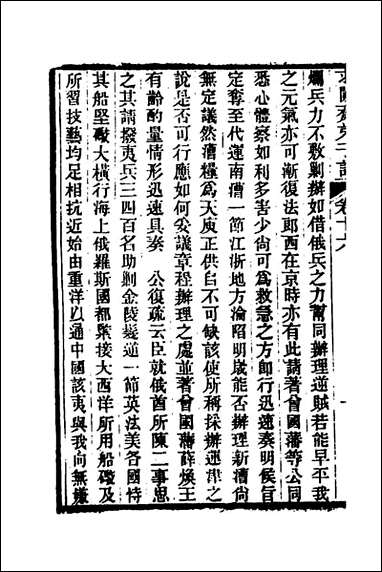 求闕齋弟子記 卷十六 一
爛兵力不敷剿辦如借俄兵之力幫同辦理逆賊若能早平我
之元氣亦可漸復法郎西在京時亦有此請著曾國藩等公同
悉心體察如利多害少尚可為救急之方即行迅速奏明候旨
定奪至代運南漕一節江浙地方淪陷明歲能否辦理新漕尚
無定議然漕糧為天庾正供自不可缺該使所稱採辦運津之
說是否可行應如何妥議章程辦理之處並著曾國藩薛煥王
有齡酌量情形迅速具奏　公復疏云臣就俄酋所陳二事思
之其請撥夷兵三四百名助剿金陵髮逆一節英法美各國恃
其船堅礮大橫行海上俄羅斯國都緊接大西洋所用船礮及
所習技藝均足相抗近始由重洋以通中國該夷與我向無嫌